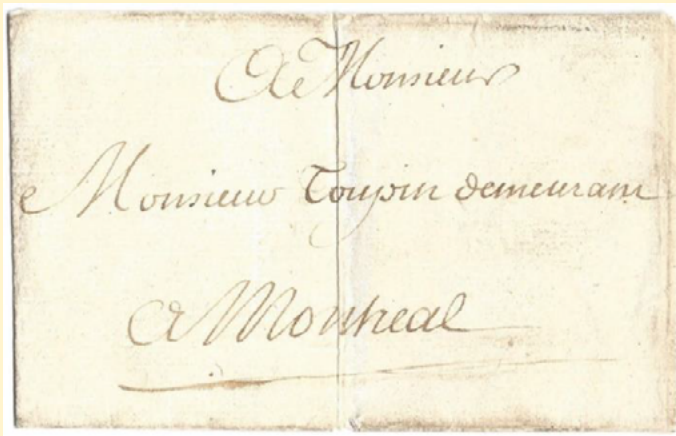 A Monsieur
Monsieur Toupin demeurant
A Montreal